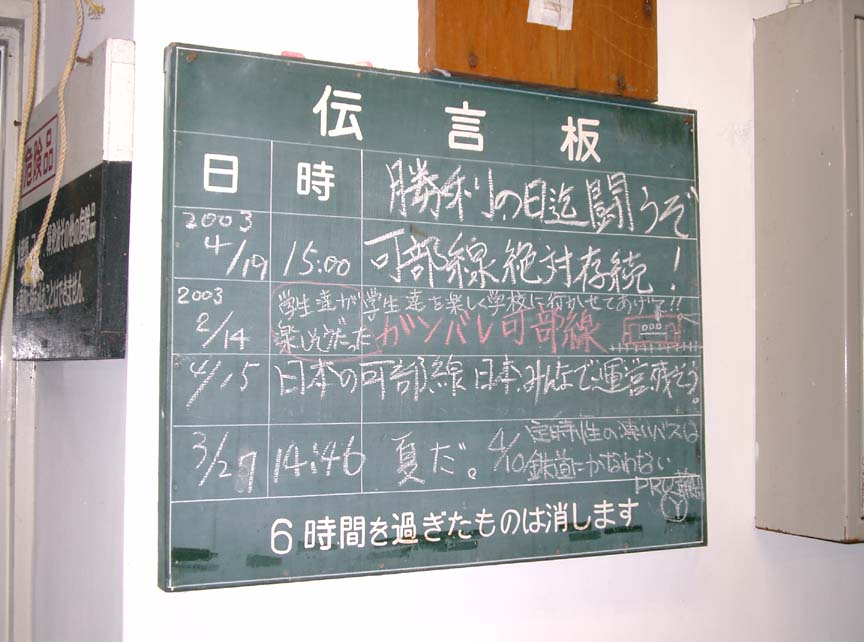 伝言板
日 時
勝利の日迄闘うぞ
2003
4/19 15:00 可部線絶対存続!
2003
2/14
学生達が学生達を楽しく学校に行かせてあげて!!
楽しんだ ガンバレ可部線
4/15 日本の可部線 日本みんなで運営残そう!
3/27 14:46 夏だ。
4/10 定時性の薄いバスは
鉄道にかなわない
6時間を過ぎたものは消します
危険品